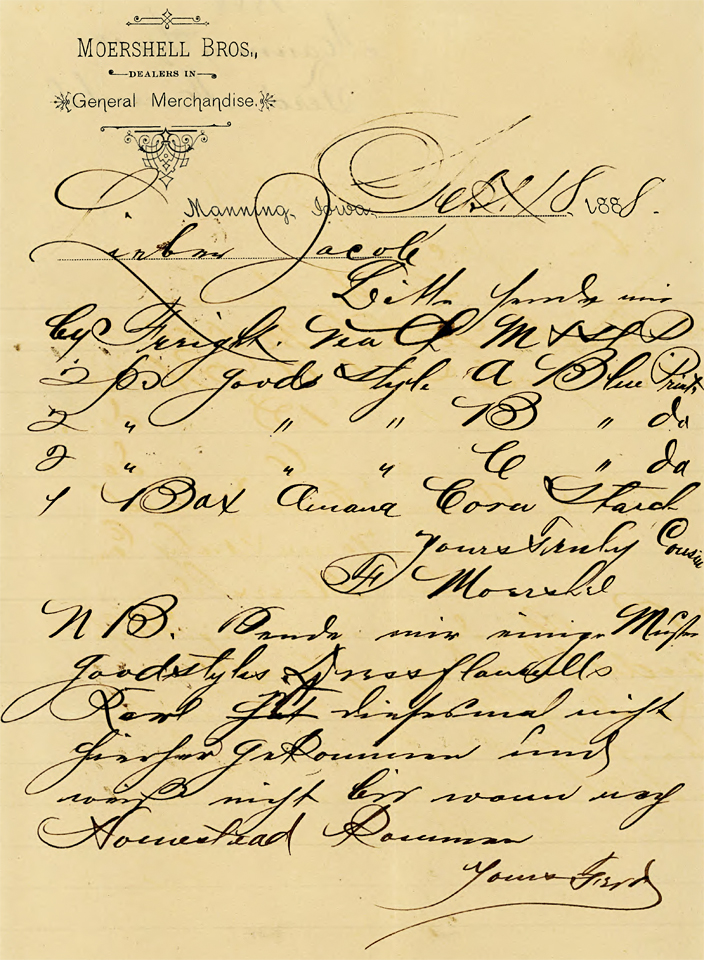 MOERSHELL BROS.,
DEALERS IN
General Merchandise.
Manning, Iowa, Sept 18, 1888.
Lieber Jacob
Bitte sende mir
by Freight. via C M & St P
2 ps goods style A Blue Prints
2 " " " B " do
2 " " " C " do
1 Box Amana Corn Starch
Yours Truly Cousin
F Moershel
NB. Sende mir einige Muster
good styles Dress flanells
Karl ist diesesmal nicht
hierher gekommen und
weiß nicht bis wann nach
Homestead Kommen
Yours Ferd